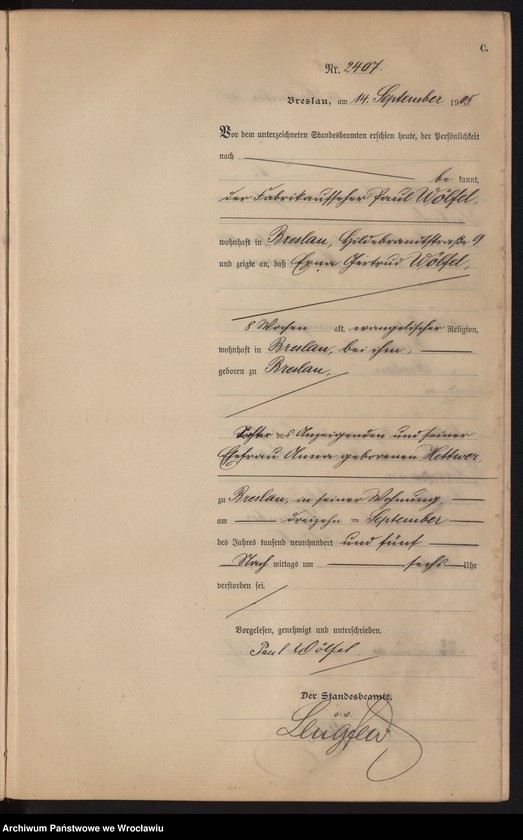 C.
Nr. 2407.
Breslau, am 14. September 1905
Vor dem unterzeichneten Standesbeamten erschien heute, der Persönlichkeit
nach be kannt,
der Fabrikaufseher Paul Wölfel,
wohnhaft in Breslau, Hildebrandtstraße 9
und zeigte an, daß Erna Gertrud Wölfel,
8 Wochen alt, evangelischer Religion,
wohnhaft in Breslau, bei ihm,
geboren zu Breslau,
Tochter des Anzeigenden und seiner
Ehefrau Anna geborenen Hettwer,
zu Breslau, in seiner Wohnung,
am dreizehn = September
des Jahres tausend neunhundert und fünf
Nach mittags um sechs Uhr
verstorben sei.
Vorgelesen, genehmigt und unterschrieben.
Paul Wölfel.
Der Standesbeamte.
Archiwum Państwowe we Wrocławiu